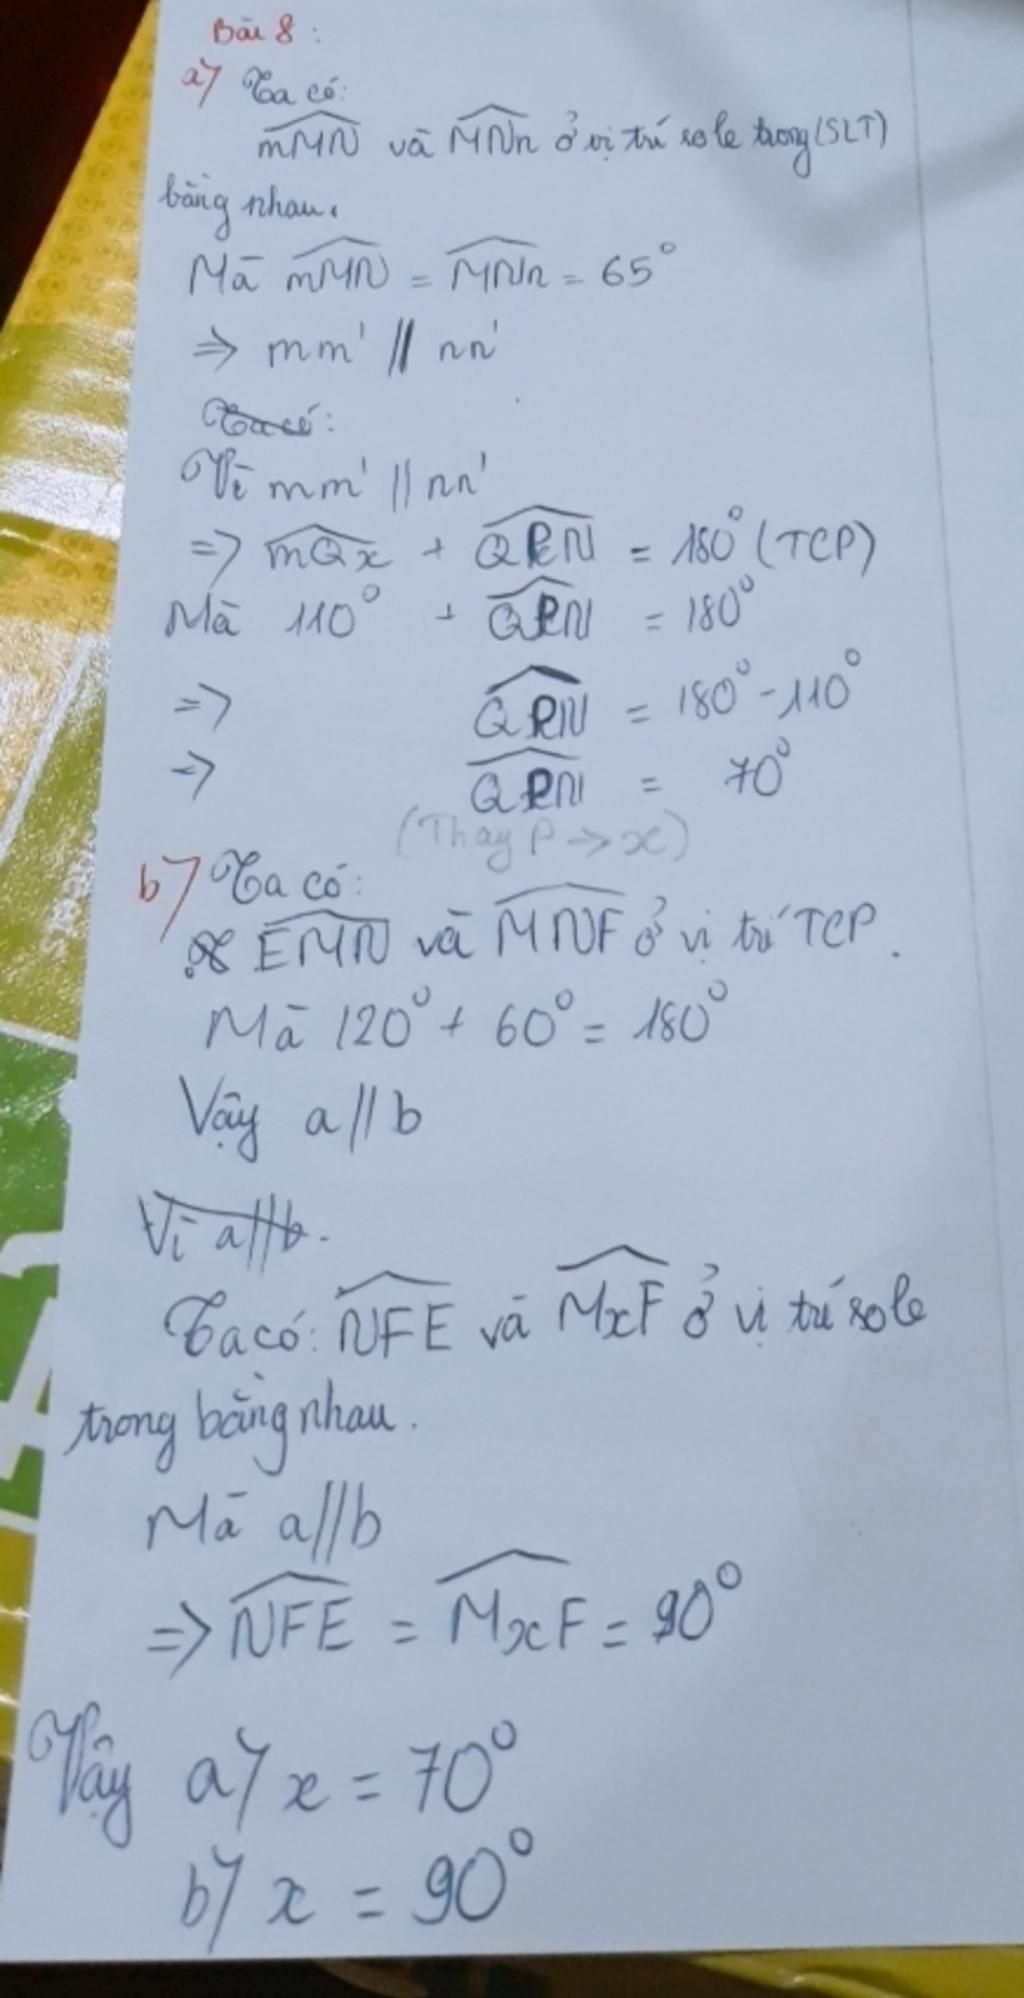 Bài 8:
a) Ta có:
mMN và MNn ở vị trí sole trong (SLT)
bằng nhau.
Mà mMN = MNn = 65°
=> mm' // nn'
Ta có:
Vì mm' // nn'
=> mQx + QPN = 180° (TCP)
Mà 110° + QPN = 180°
=> QPN = 180° - 110°
=> QPN = 70°
(Thay P -> x)
b) Ta có:
EMN và MNF ở vị trí TCP.
Mà 120° + 60° = 180°
Vậy a//b
Vì a//b.
Ta có: NFE và MxF ở vị trí sole
trong bằng nhau.
Mà a//b
=> NFE = MxF = 90°
Vậy a) x = 70°
b) x = 90°